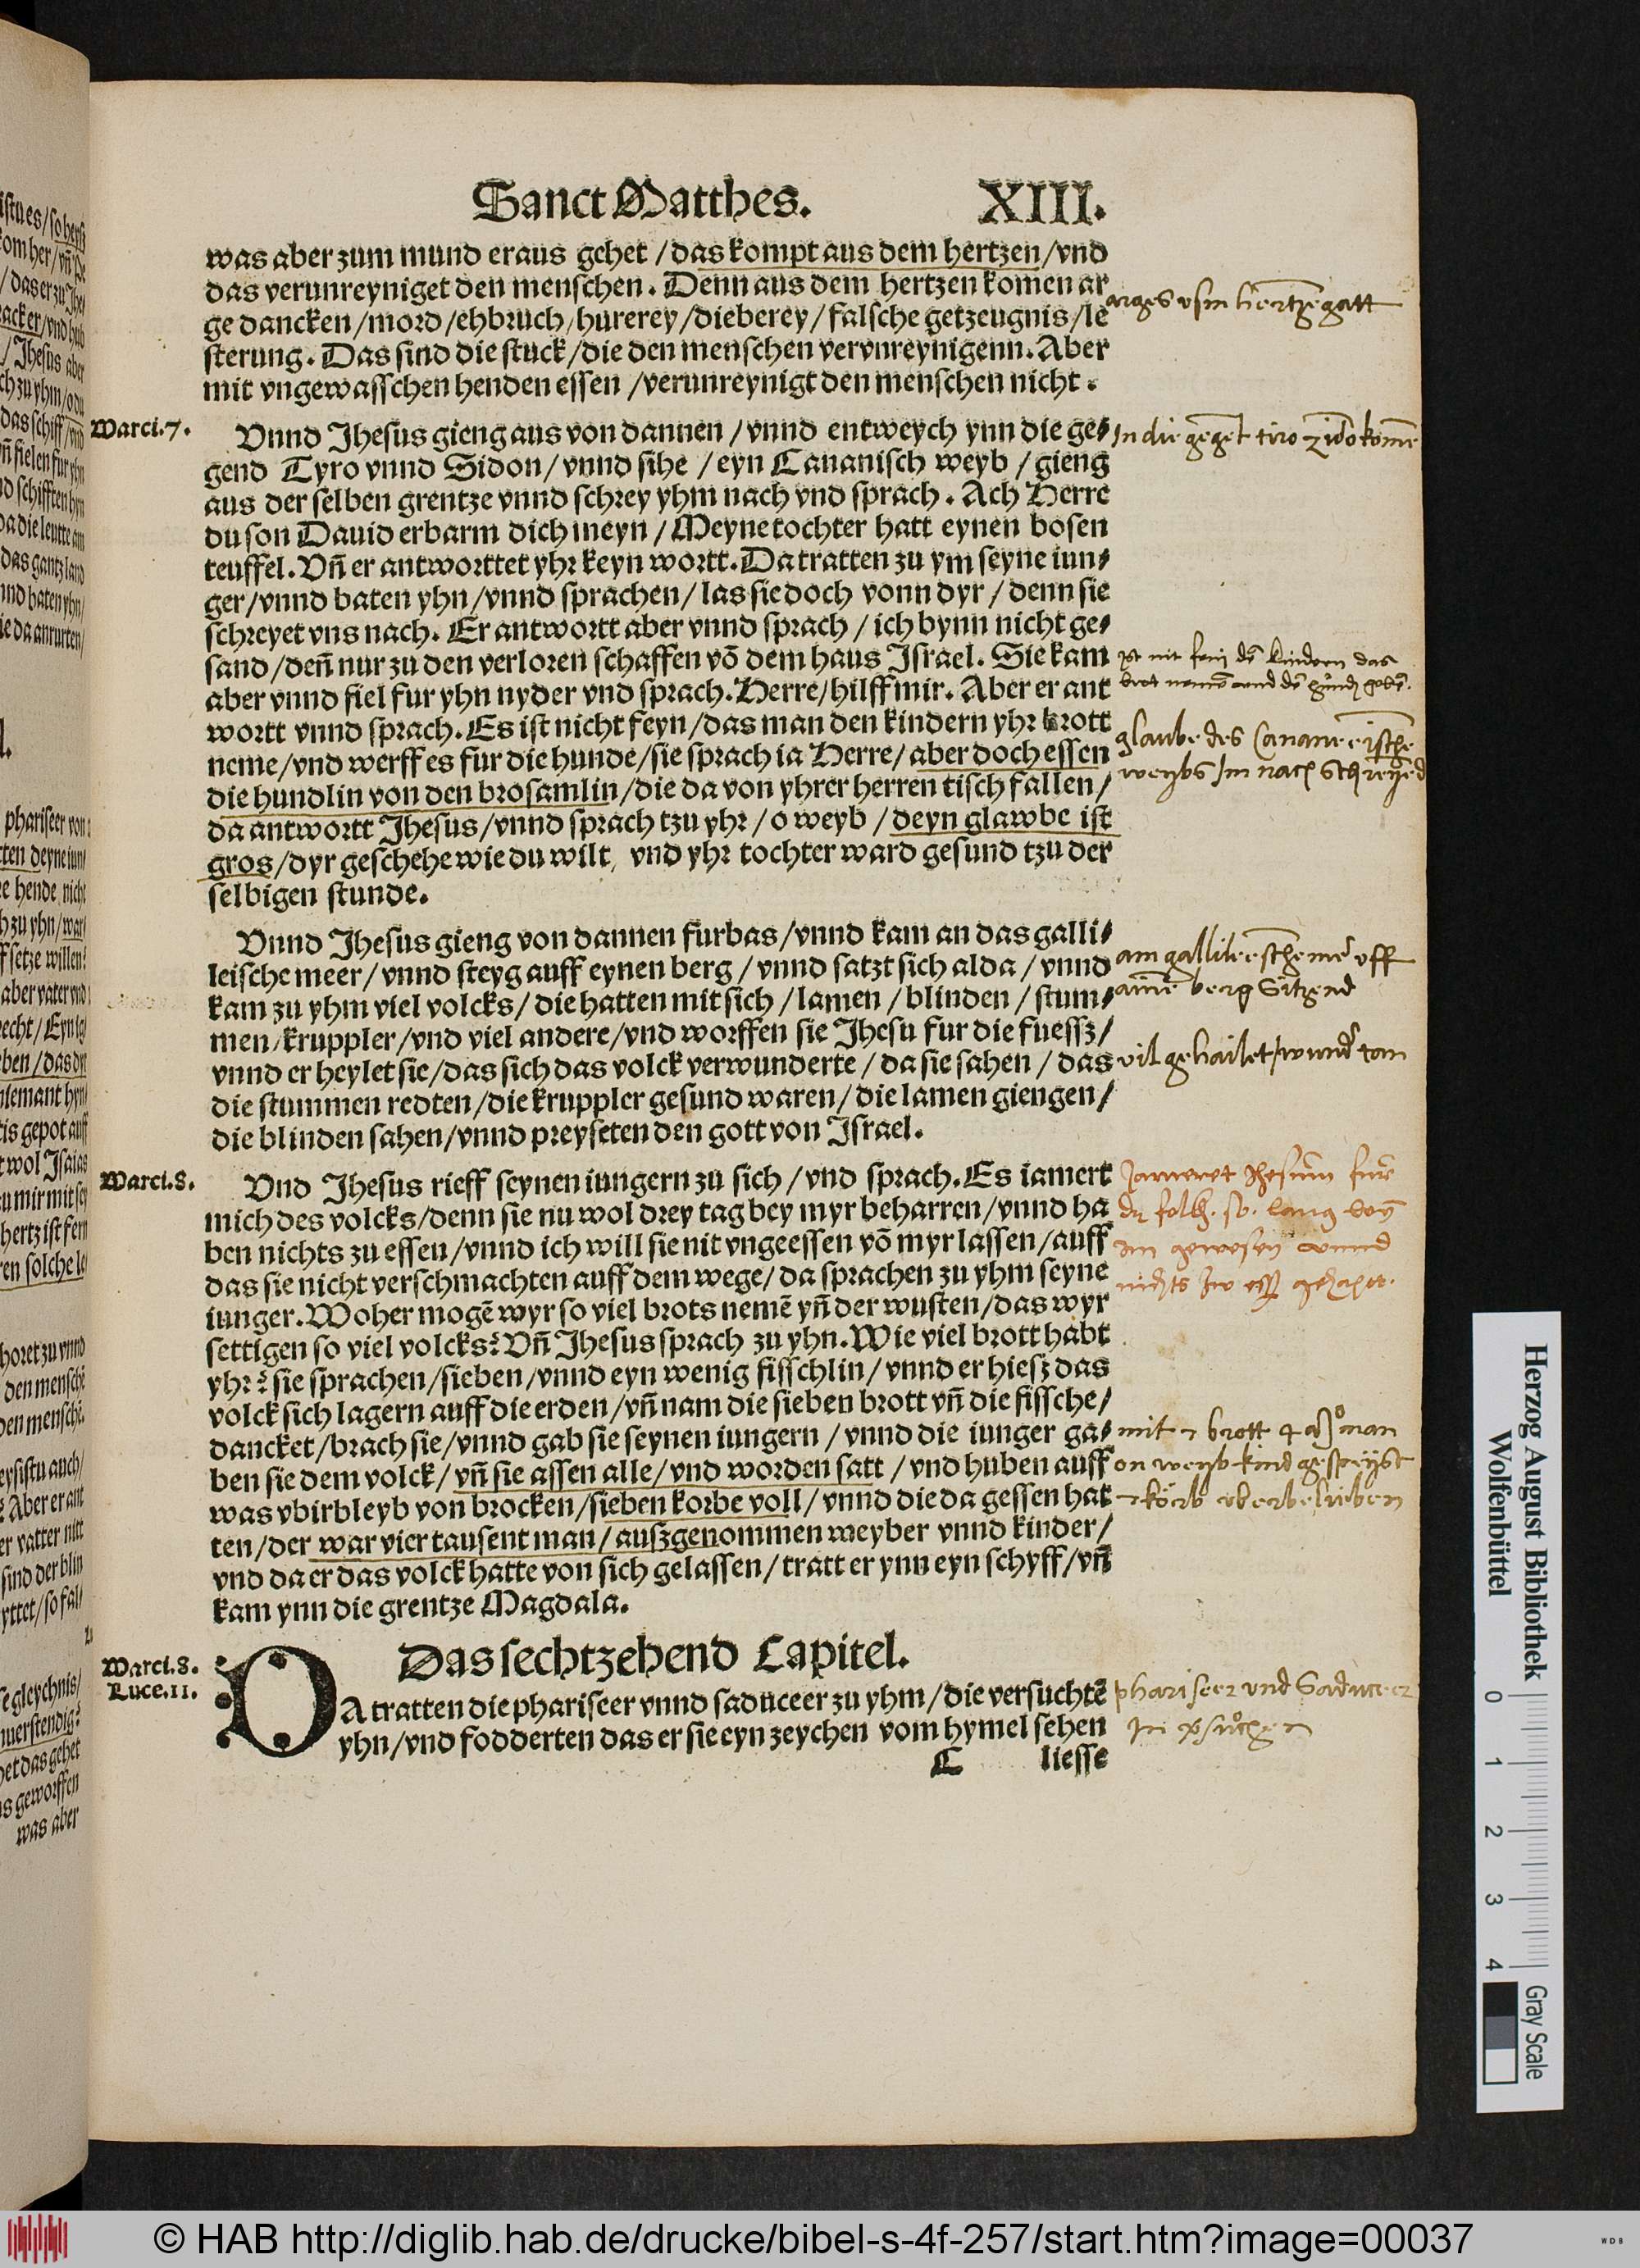 Sanct Matthes. XIII.
was aber zum mund eraus gehet / das kompt aus dem hertzen / vnd
das verunreyniget den menschen. Denn aus dem hertzen komen ar
ge dancken / mord / ehbruch / hurerey / dieberey / falsche getzeugnis / le
sterung. Das sind die stuck / die den menschen vervnreynigenn. Aber
mit vngewasschen henden essen / verunreynigt den menschen nicht.
Marci.7.
Vnnd Jhesus gieng aus von dannen / vnnd entweych ynn die ge⸗
gend Tyro vnnd Sidon / vnnd sihe / eyn Cananisch weyb / gieng
aus der selben grentze vnnd schrey yhm nach vnd sprach. Ach Herre
du son Dauid erbarm dich meyn / Meyne tochter hatt eynen bosen
teuffel. Vn̄ er antworttet yhr keyn wortt. Da tratten zu ym seyne iun⸗
ger / vnnd baten yhn / vnnd sprachen / las sie doch vonn dyr / denn sie
schreyet vns nach. Er antwortt aber vnnd sprach / ich bynn nicht ge⸗
sand / den̄ nur zu den verloren schaffen vō dem haus Israel. Sie kam
aber vnnd fiel fur yhn nyder vnd sprach. Herre / hilff mir. Aber er ant
wortt vnnd sprach. Es ist nicht feyn / das man den kindern yhr brott
neme / vnd werff es fur die hunde / sie sprach ia Herre / aber doch essen
die hundlin von den brosamlin / die da von yhrer herren tisch fallen /
da antwortt Jhesus / vnnd sprach tzu yhr / o weyb / deyn glawbe ist
gros / dyr geschehe wie du wilt, vnd yhr tochter ward gesund tzu der
selbigen stunde.
Vnnd Jhesus gieng von dannen furbas / vnnd kam an das galli⸗
leische meer / vnnd steyg auff eynen berg / vnnd satzt sich alda / vnnd
kam zu yhm viel volcks / die hatten mit sich / lamen / blinden / stum⸗
men / kruppler / vnd viel andere / vnd worffen sie Jhesu fur die fuessz /
vnnd er heylet sie / das sich das volck verwunderte / da sie sahen / das
die stummen redten / die kruppler gesund waren / die lamen giengen /
die blinden sahen / vnnd preyseten den gott von Israel.
Marci.8.
Vnd Jhesus rieff seynen iungern zu sich / vnd sprach. Es iamert
mich des volcks / denn sie nu wol drey tag bey myr beharren / vnnd ha
ben nichts zu essen / vnnd ich will sie nit vngeessen vō myr lassen / auff
das sie nicht verschmachten auff dem wege / da sprachen zu yhm seyne
iunger. Woher mogē wyr so viel brots nemē yn̄ der wusten / das wyr
settigen so viel volcks? Vn̄ Jhesus sprach zu yhn. Wie viel brott habt
yhr? sie sprachen / sieben / vnnd eyn wenig fisschlin / vnnd er hiesz das
volck sich lagern auff die erden / vn̄ nam die sieben brott vn̄ die fissche /
dancket / brach sie / vnnd gab sie seynen iungern / vnnd die iunger ga⸗
ben sie dem volck / vn̄ sie assen alle / vnd worden satt / vnd huben auff
was vbirbleyb von brocken / sieben korbe voll / vnnd die da gessen hat
ten / der war vier tausent man / auszgenommen weyber vnnd kinder /
vnd da er das volck hatte von sich gelassen / tratt er ynn eyn schyff / vn̄
kam ynn die grentze Magdala.
Das sechtzehend Capitel.
Marci.8.
Luce.11.
DA tratten die phariseer vnnd saduceer zu yhm / die versuchtē
yhn / vnd fodderten das er sie eyn zeychen vom hymel sehen
C liesse
arges vsm hertzē gatt
In die gegēt tiro zido komē
glaube des Cananeeischē
weybs Im nach Schreyēd
am gallileeschē mer vff
ainē berg Sitzend
vil gehailet / wunder tan
Jameret Jhesum
mit 7 brott
on weyb kind gespeyst
7 körb vberbeliben
phariseer vnd Saduceer
Herzog August Bibliothek
Wolfenbüttel
0 1 2 3 4
Gray Scale
© HAB http://diglib.hab.de/drucke/bibel-s-4f-257/start.htm?image=00037
WDB